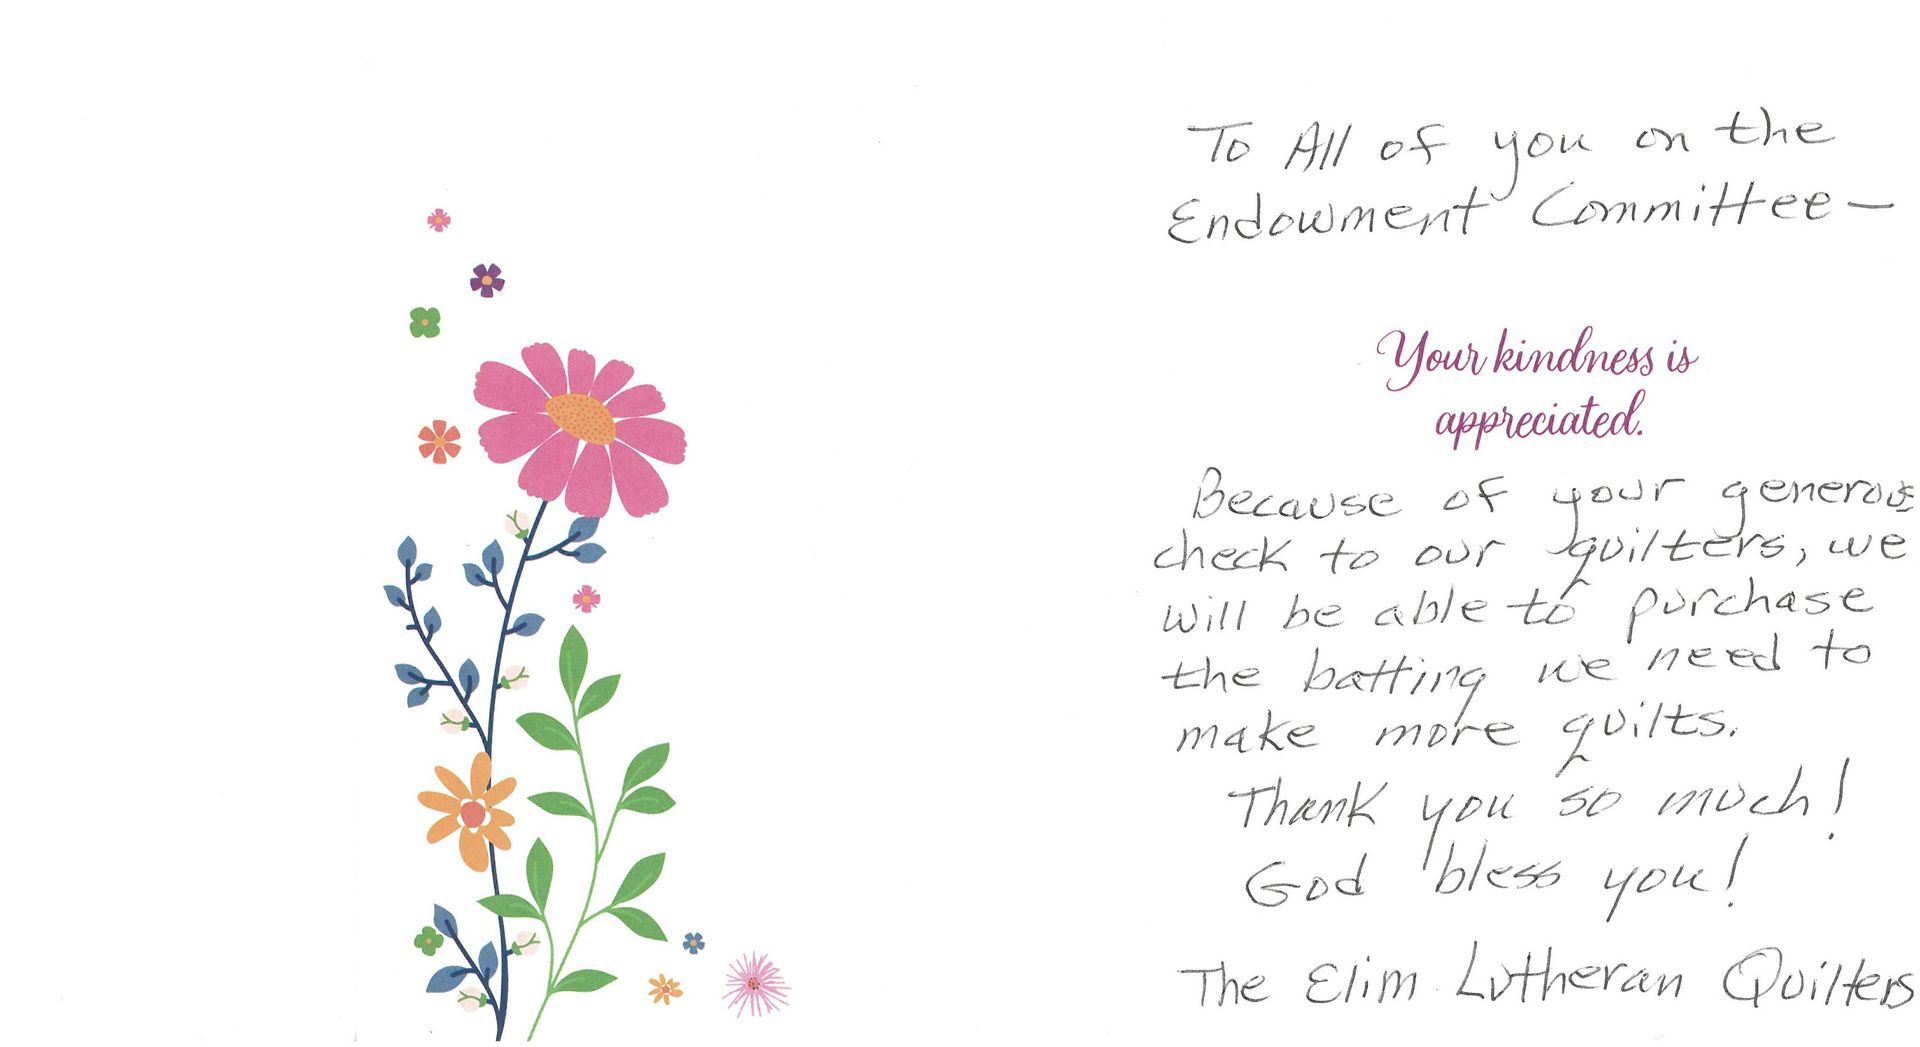 To All of you on the
Endowment Committee —
Your kindness is
appreciated.
Because of your generous
check to our quilters, we
will be able to purchase
the batting we need to
make more quilts.
Thank you so much!
God bless you!
The Elim Lutheran Quilters